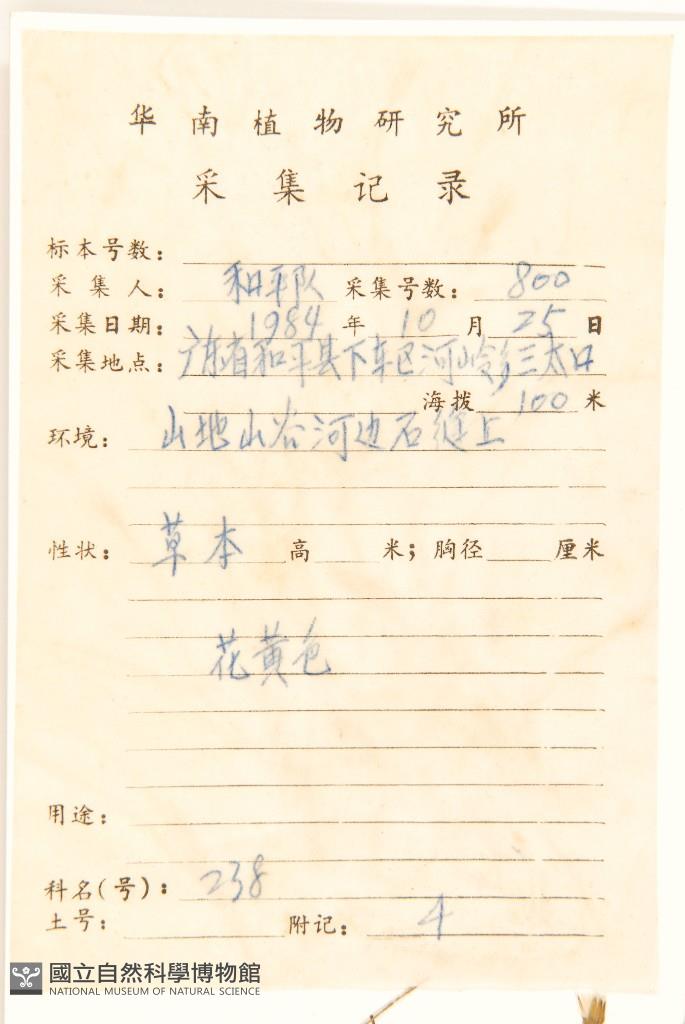 华南植物研究所
采集记录
标本号数：
采集人： 和平队 采集号数： 800
采集日期： 1984 年 10 月 25 日
采集地点： 广东省和平县下车区河岭乡三太口
海拨 100 米
环境： 山地山谷河边石缝上
性状： 草本 高 米；胸径 厘米
花黄色
用途：
科名(号)： 238
土号： 附记： 4
國立自然科學博物館
NATIONAL MUSEUM OF NATURAL SCIENCE